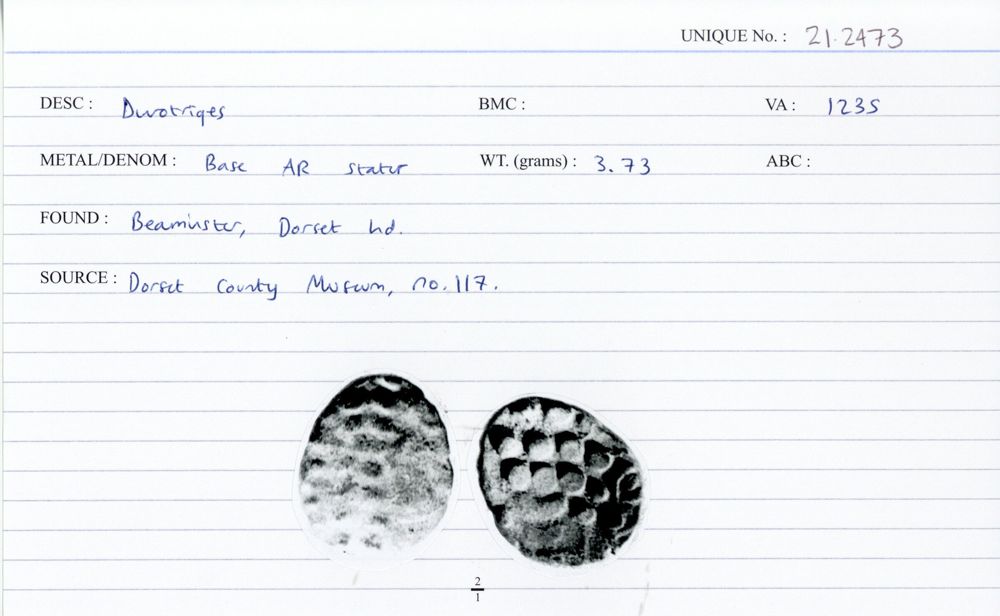 UNIQUE No. : 21.2473
DESC : Durotriges BMC : VA : 1235
METAL/DENOM : Base AR stater WT. (grams) : 3.73 ABC :
FOUND : Beaminster, Dorset hd.
SOURCE : Dorset County Museum, no. 117.
2
1